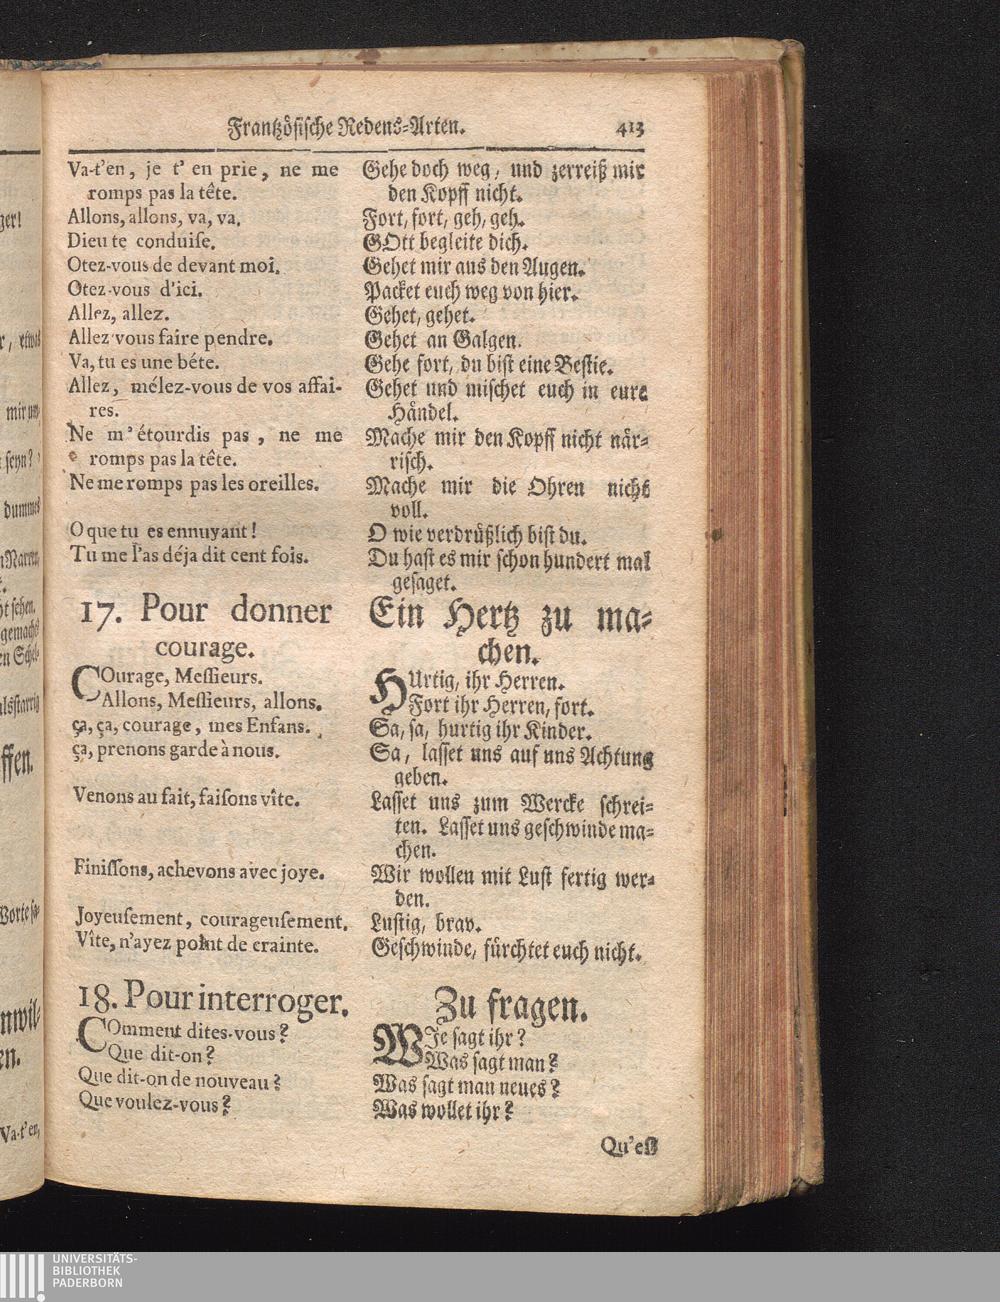 Frantzösische Redens-Arten. 413
Va-t'en, je t' en prie, ne me
romps pas la tête.
Allons, allons, va, va.
Dieu te conduiſe.
Otez-vous de devant moi.
Otez-vous d'ici.
Allez, allez.
Allez vous faire pendre.
Va, tu es une béte.
Allez, mélez-vous de vos affai-
res.
Ne m'étourdis pas, ne me
romps pas la tête.
Ne me romps pas les oreilles.
O que tu es ennuyant!
Tu me l'as déja dit cent fois.
17. Pour donner
courage.
COurage, Meſſieurs.
Allons, Meſſieurs, allons.
ça, ça, courage, mes Enfans.
ça, prenons garde à nous.
Venons au fait, faiſons vîte.
Finiſſons, achevons avec joye.
Joyeuſement, courageuſement.
Vîte, n'ayez point de crainte.
18. Pour interroger.
COmment dites-vous?
Que dit-on?
Que dit-on de nouveau?
Que voulez-vous?
Gehe doch weg, und zerreiß mir
den Kopff nicht.
Fort, fort, geh, geh.
GOtt begleite dich.
Gehet mir aus den Augen.
Packet euch weg von hier.
Gehet, gehet.
Gehet an Galgen.
Gehe fort, du biſt eine Beſtie.
Gehet und miſchet euch in eure
Händel.
Mache mir den Kopff nicht när-
riſch.
Mache mir die Ohren nicht
voll.
O wie verdrüßlich biſt du.
Du haſt es mir ſchon hundert mal
geſaget.
Ein Hertz zu ma-
chen.
HUrtig, ihr Herren.
Fort ihr Herren, fort.
Sa, ſa, hurtig ihr Kinder.
Sa, laſſet uns auf uns Achtung
geben.
Laſſet uns zum Wercke ſchrei-
ten. Laſſet uns geſchwinde ma-
chen.
Wir wollen mit Luſt fertig wer-
den.
Luſtig, brav.
Geſchwinde, fürchtet euch nicht.
Zu fragen.
WIe ſagt ihr?
Was ſagt man?
Was ſagt man neues?
Was wollet ihr?
Qu'eſt
UNIVERSITÄTS-
BIBLIOTHEK
PADERBORN